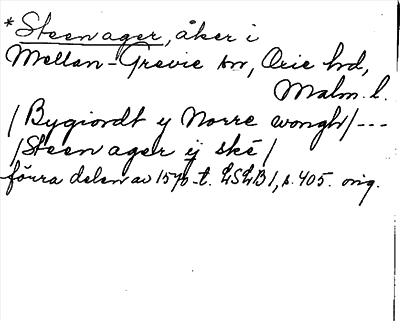 *Steen ager, åker i
Mellan-Grevie sn, Oxie hd,
Malm. l.
/Bygiordt y Norre wongh/---
/Steen ager ij ské/
förra delen av 1570-t. LSLB 1, s. 405. orig.